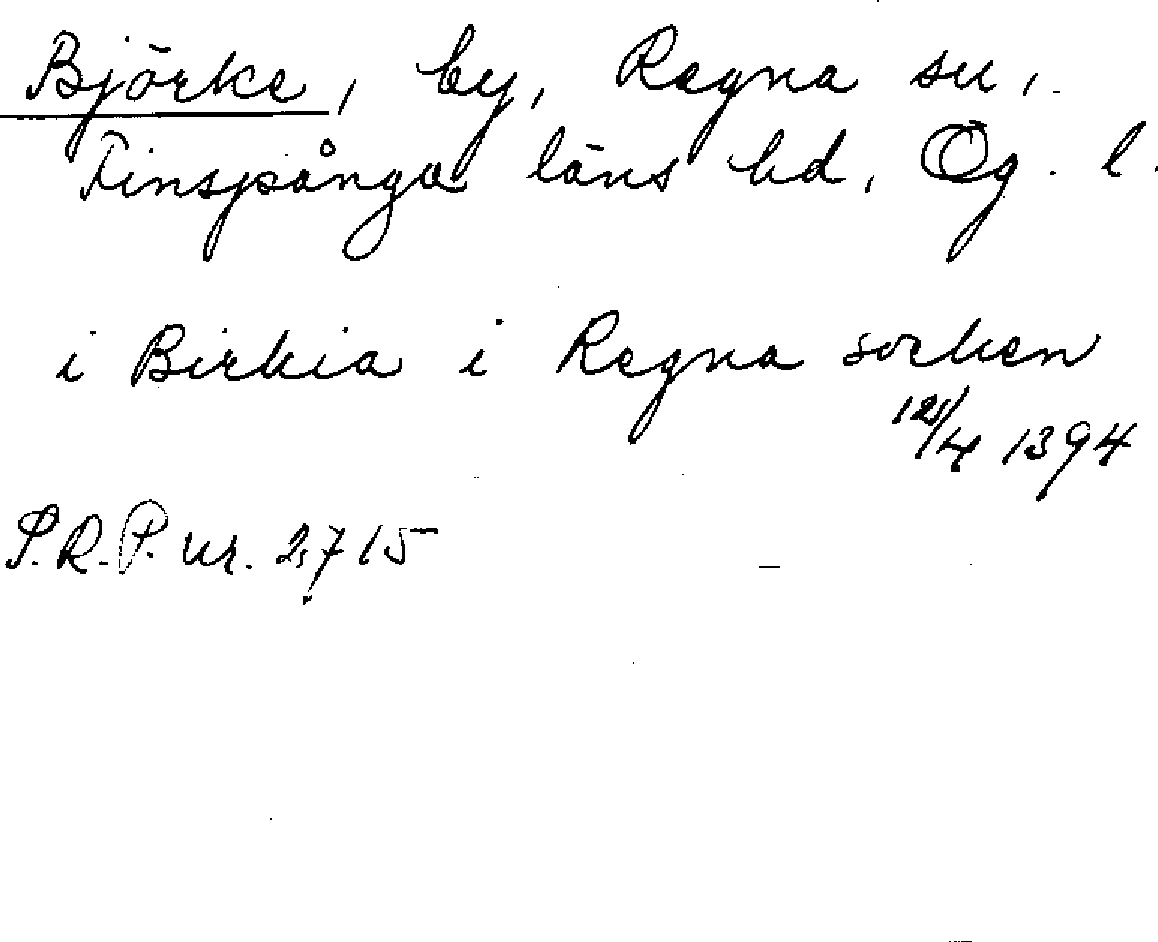 Björke, by, Regna sn,
Finspånga läns hd, Ög. l.
i Birkia i Regna sorken
12/4 1394
S.R.P. nr. 2715